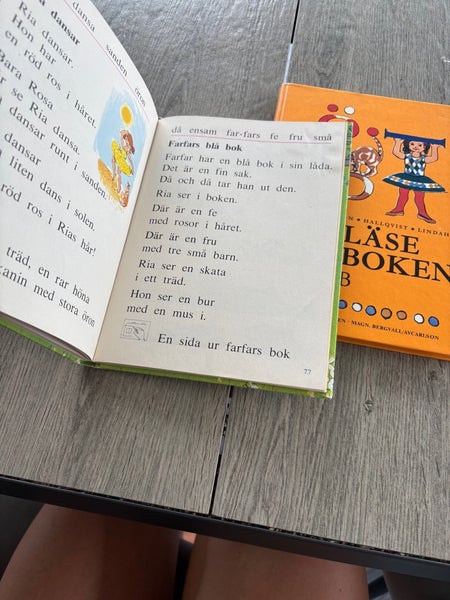 dansa sanden öron
dansar
Ria dansar.
Hon har
en röd ros i håret.
Bara Rosa
ser Ria dansa.
dansar runt i sanden.
dansar
liten dans i solen.
röd ros i Rias hår!
träd, en rar höna
kanin med stora öron
då ensam far-fars fe fru små
Farfars blå bok
Farfar har en blå bok i sin låda.
Det är en fin sak.
Då och då tar han ut den.
Ria ser i boken.
Där är en fe
med rosor i håret.
Där är en fru
med tre små barn.
Ria ser en skata
i ett träd.
Hon ser en bur
med en mus i.
En sida ur farfars bok
77
HALLQVIST · LINDAH
LÄSE
BOKEN
B
EN - MAGN. BERGVALL/AVCARLSON